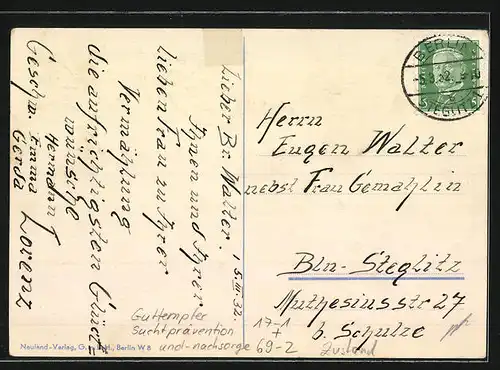 Lieber Br. Walter.
15. III. 32.
Ihnen und Ihrer
lieben Frau zu Ihrer
Vermählung
die aufrichtigsten Glück=
wünsche
Geschw. Emma
Hermann Lorenz
Gerda
BERLIN
5.3.32
STEGLITZ
Herrn
Eugen Walter
nebst Frau Gemahlin
Bln-Steglitz
Muthesiusstr 27
b. Schulze
Guttempler
Suchtprävention
und -nachsorge
17+1
69-2
Zustand
Neuland-Verlag, G.m.b.H., Berlin W 8